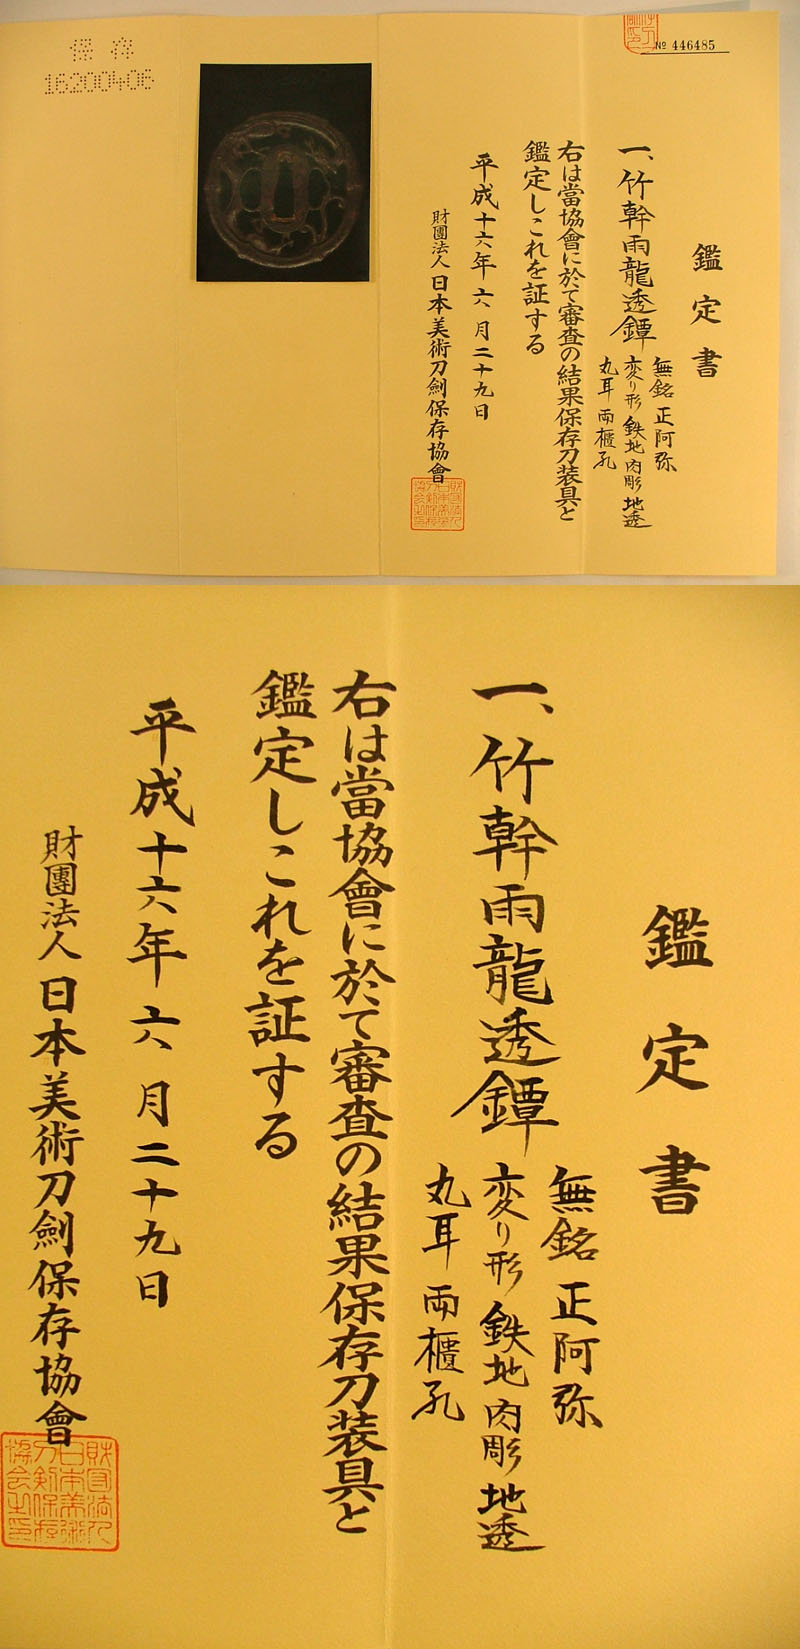 保存
16200406
№ 446485
鑑定書
一、竹幹雨龍透鐔
無銘 正阿弥
変り形 鉄地 肉彫 地透
丸耳 両櫃孔
右は當協會に於て審査の結果保存刀装具と
鑑定しこれを証する
平成十六年六月二十九日
財團法人日本美術刀劍保存協會
鑑定書
一、竹幹雨龍透鐔
無銘 正阿弥
変り形 鉄地 肉彫 地透
丸耳 両櫃孔
右は當協會に於て審査の結果保存刀装具と
鑑定しこれを証する
平成十六年六月二十九日
財團法人日本美術刀劍保存協會